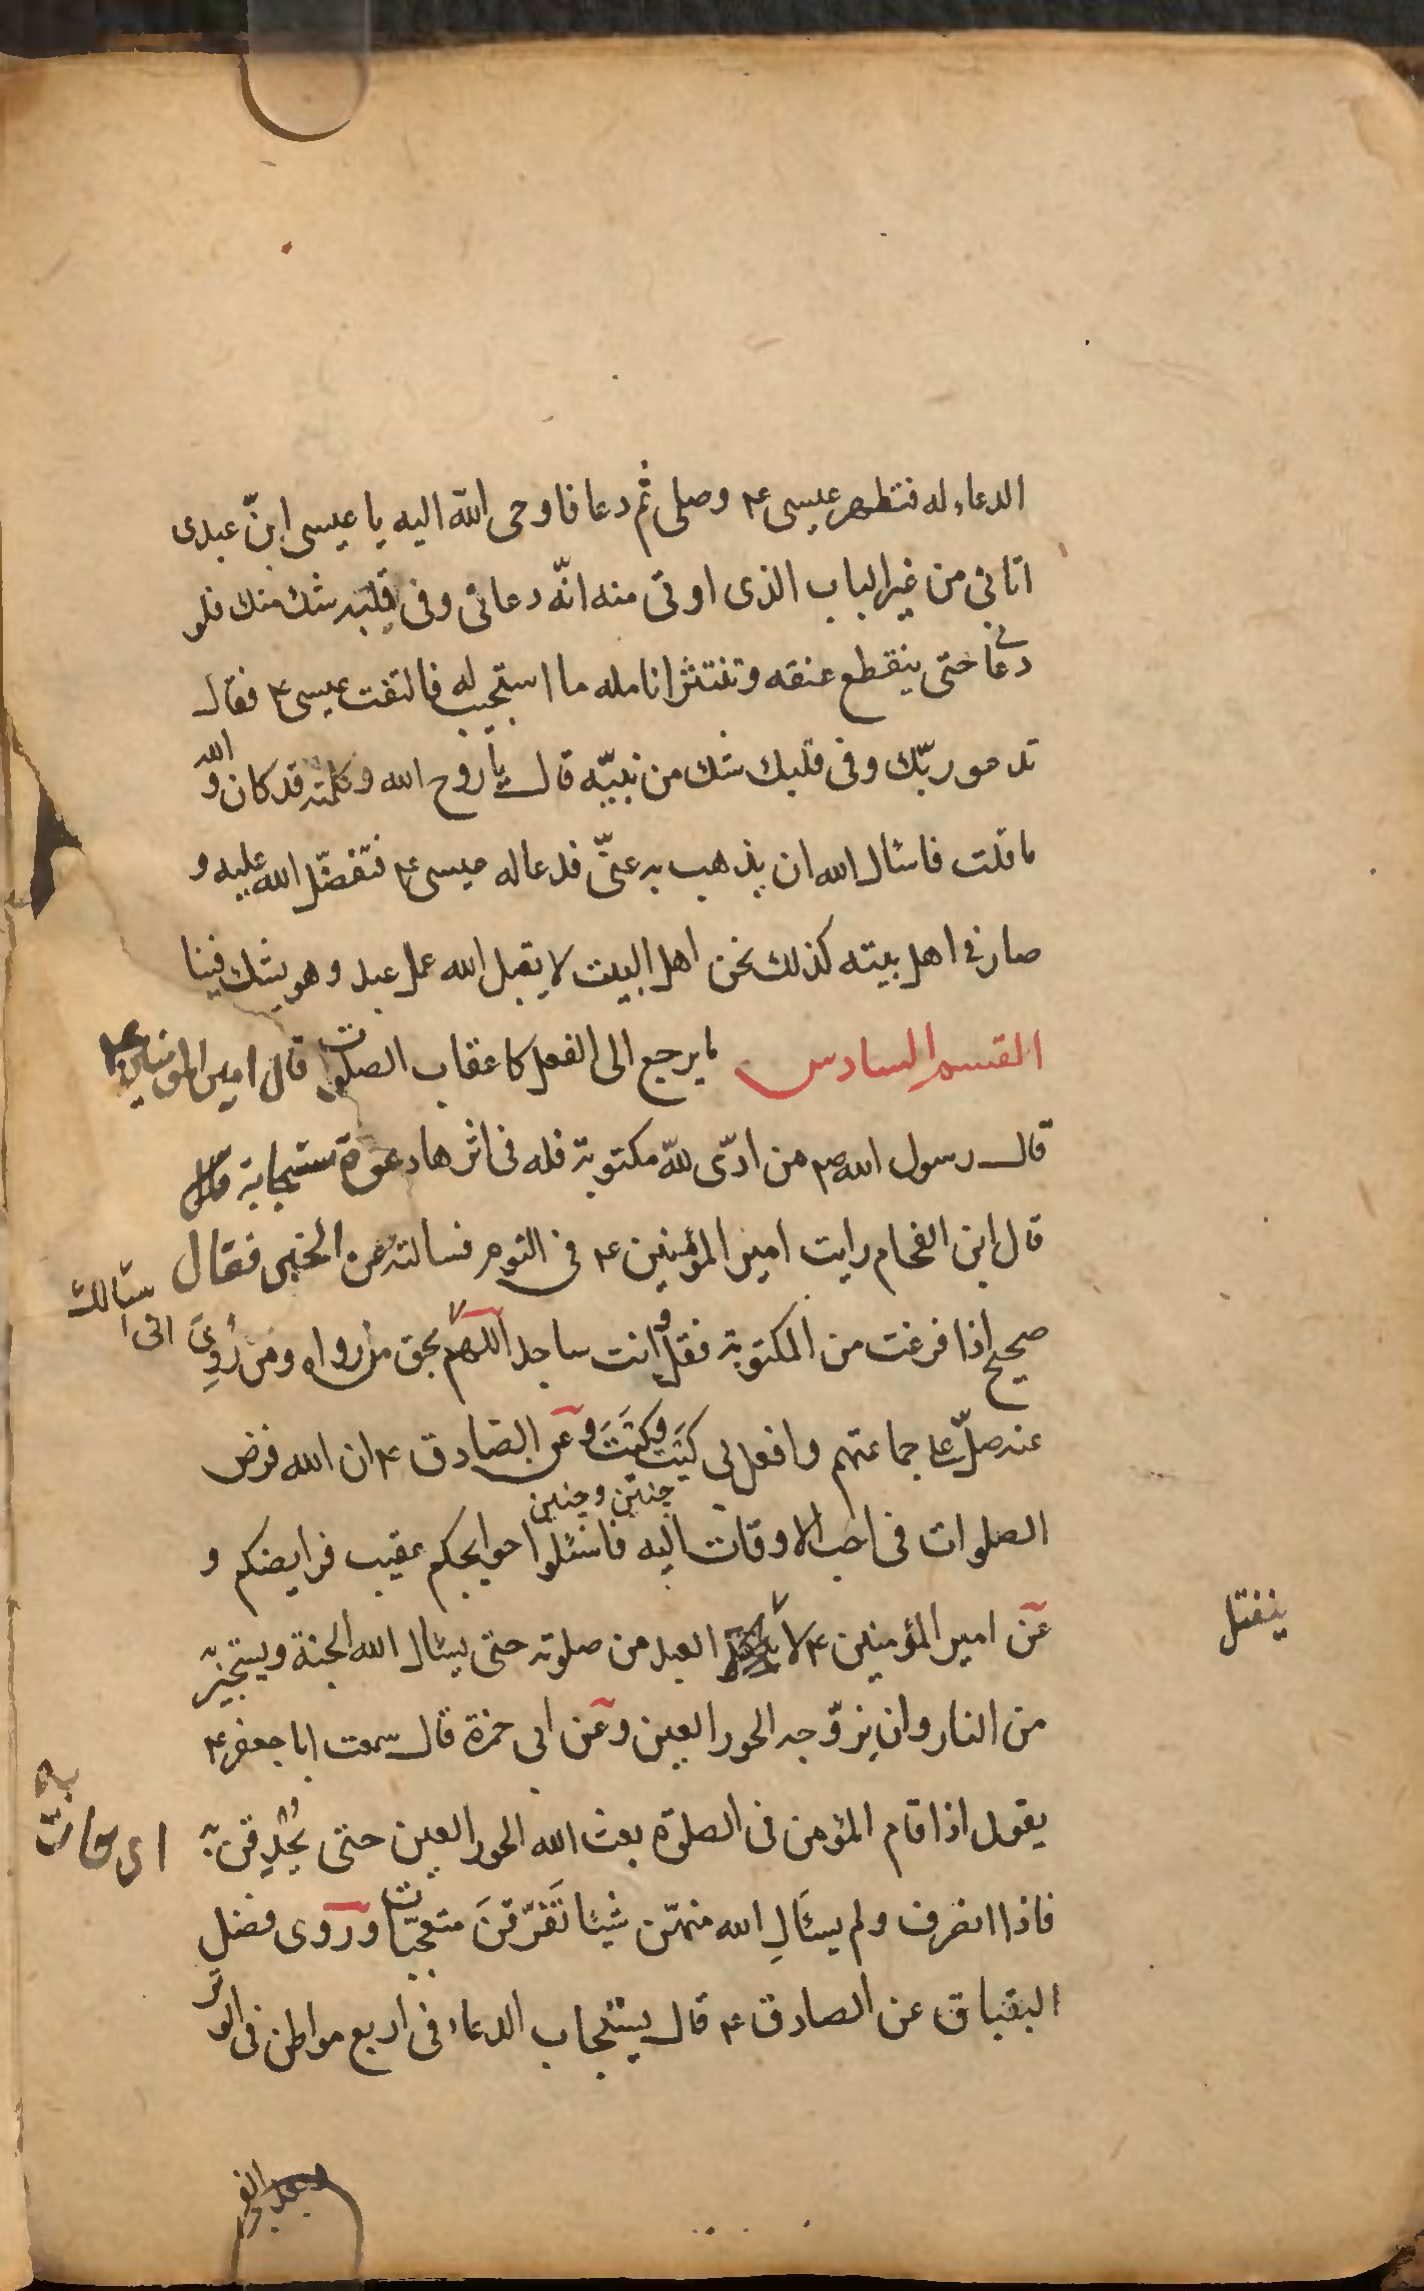 الدعاء له فتطهر عيسى ع وصلى ثم دعا فاوحى الله اليه يا عيسى ان عبدى
اتانى من غير الباب الذى اوتى منه انّه دعانى وفى قلبه شك منك فلو
دعانى حتى ينقطع عنقه وتنتثر انامله ما استجيب له فالتفت عيسى ع فقال
تدعو ربّك وفى قلبك شك من نبيّه قال يا روح الله وكلمته قد كان والله
ما قلت فاسئال الله ان يذهب به عنّى فدعا له عيسى ع فتفضّل الله عليه و
صار فى اهل بيته كذلك نحن اهل البيت لا يقبل الله عمل عبد وهو يشك فينا
القسم السادس ما يرجع الى الفعل كاعقاب الصلوات قال امير المؤمنين ع
قال رسول الله ص من ادّى لله مكتوبة فله فى اثرها دعوة مستجابة
قال ابن الفحام رايت امير المؤمنين ع فى النوم فسالته عن الخبر فقال
صحيح اذا فرغت من المكتوبة فقل وانت ساجد اللهم بحق من رواه ومن رُوِىَ
انى اسئالك
عنه صلّ على جماعتهم وافعل بى كَيتَ وكَيتَ وعن الصادق ع ان الله فرض
چنين و چنين
الصلوات فى احب الاوقات اليه فاسئلوا حوايجكم عقيب فرايضكم و
عن امير المؤمنين ع لا العبد من صلوته حتى يسئال الله الجنة ويستجيربه
ينفتل
من النار وان يزوّجه الحور العين وعن ابى حمزة قال سمعت ابا جعفر ع
يقول اذا قام المؤمن فى الصلوة بعث الله الحور العين حتى يُحْدِقن به
فاذا انصرف ولم يسئالِ الله منهنّ شيئا تَفَرّقنَ متعجّبات وروى فضل
البقباق عن الصادق ع قال يستجاب الدعاء فى اربع مواطن فى الوتر